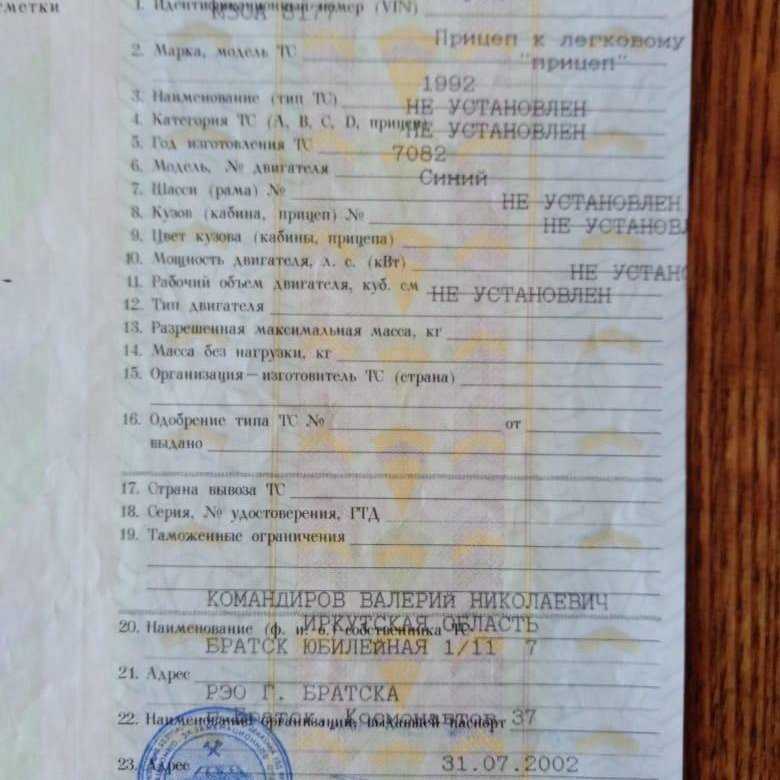 метки
1. Идентификационный номер (VIN)
МЗСА 8177
Прицеп к легковому
2. Марка, модель ТС
"прицеп"
1992
3. Наименование (тип ТС)
НЕ УСТАНОВЛЕН
4. Категория ТС (А, В, С, D, прицеп)
НЕ УСТАНОВЛЕН
5. Год изготовления ТС
7082
6. Модель, № двигателя
Синий
7. Шасси (рама) №
НЕ УСТАНОВЛЕН
8. Кузов (кабина, прицеп) №
НЕ УСТАНОВЛ
9. Цвет кузова (кабины, прицепа)
10. Мощность двигателя, л. с. (кВт)
НЕ УСТАНО
11. Рабочий объем двигателя, куб. см
НЕ УСТАНОВЛЕН
12. Тип двигателя
13. Разрешенная максимальная масса, кг
14. Масса без нагрузки, кг
15. Организация—изготовитель ТС (страна)
16. Одобрение типа ТС № от
выдано
17. Страна вывоза ТС
18. Серия, № удостоверения, ГТД
19. Таможенные ограничения
КОМАНДИРОВ ВАЛЕРИЙ НИКОЛАЕВИЧ
ИРКУТСКАЯ ОБЛАСТЬ
20. Наименование (ф. и. о.) собственника ТС
БРАТСК ЮБИЛЕЙНАЯ 1/11 7
21. Адрес
РЭО Г. БРАТСКА
г.Братск, Космонавтов 37
22. Наименование организации, выдавшей паспорт
23. Адрес
31.07.2002